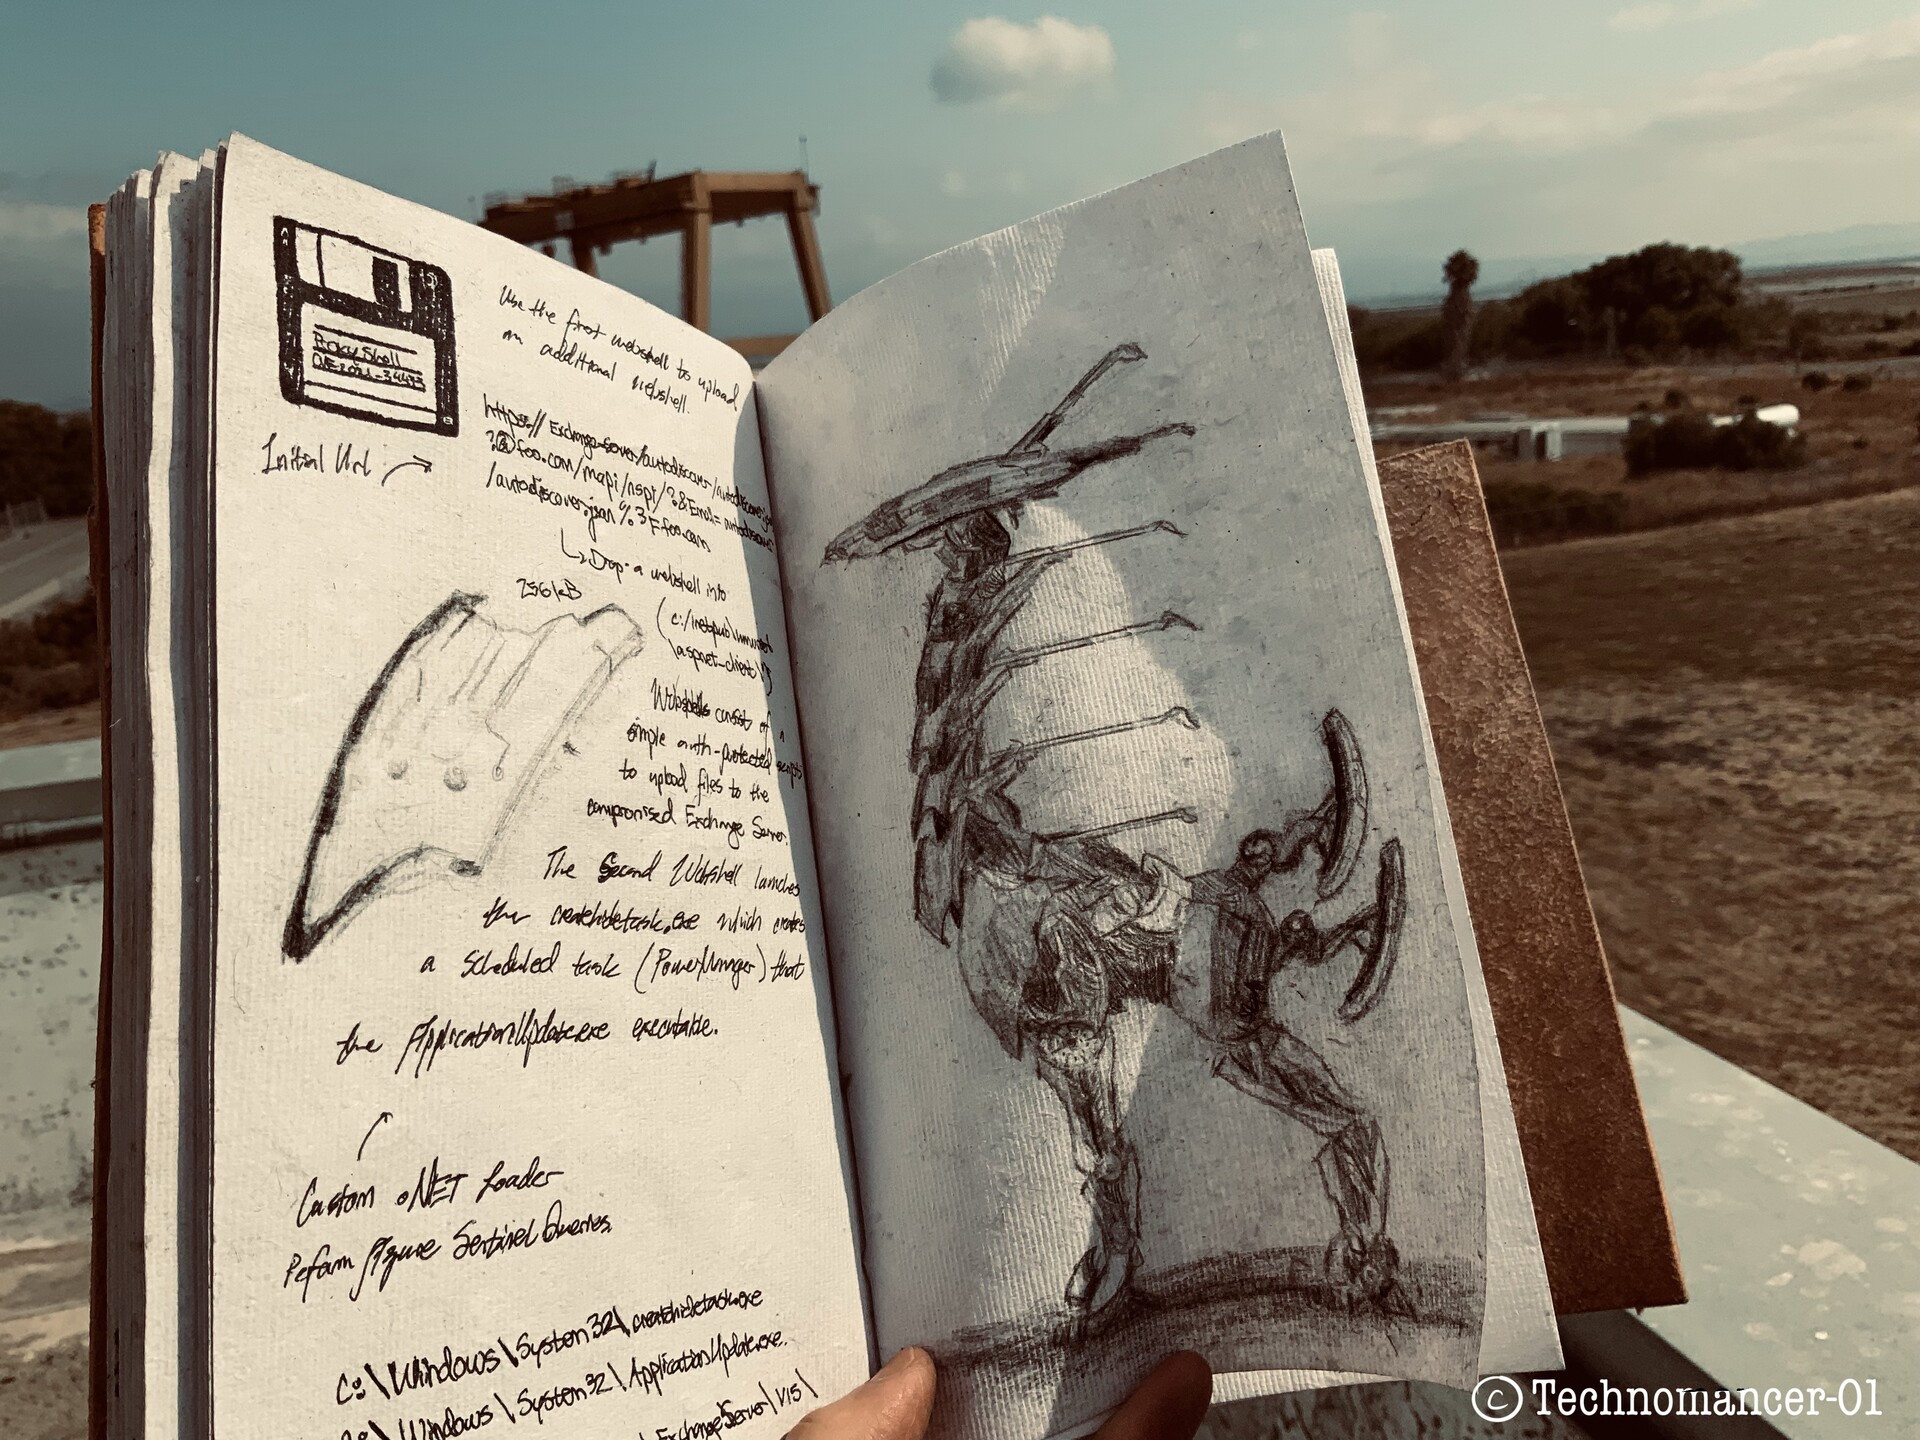 Proxy Shell
CVE-2021-34473
Use the first webshell to upload
an additional webshell.
Initial Url
https:// Exchange-server/autodiscover/autodiscover.json
?@foo.com/mapi/nspi/?&Email=autodiscover
/autodiscover.json%3F@foo.com
Drop a webshell into
256kB
(c:/inetpub\wwwroot
\aspnet_client\)
Webshells consist of a
simple auth-protected scripts
to upload files to the
compromised Exchange Server.
The Second Webshell launches
the createhidetask.exe which creates
a scheduled task (PowerManager) that
the ApplicationUpdate.exe executable.
Custom .NET Loader
Peform Azure Sentinel Queries
C:\Windows\System32\createhidetask.exe
\Windows\System32\ApplicationUpdate.exe.
Exchange Server\V15\
©Technomancer-01